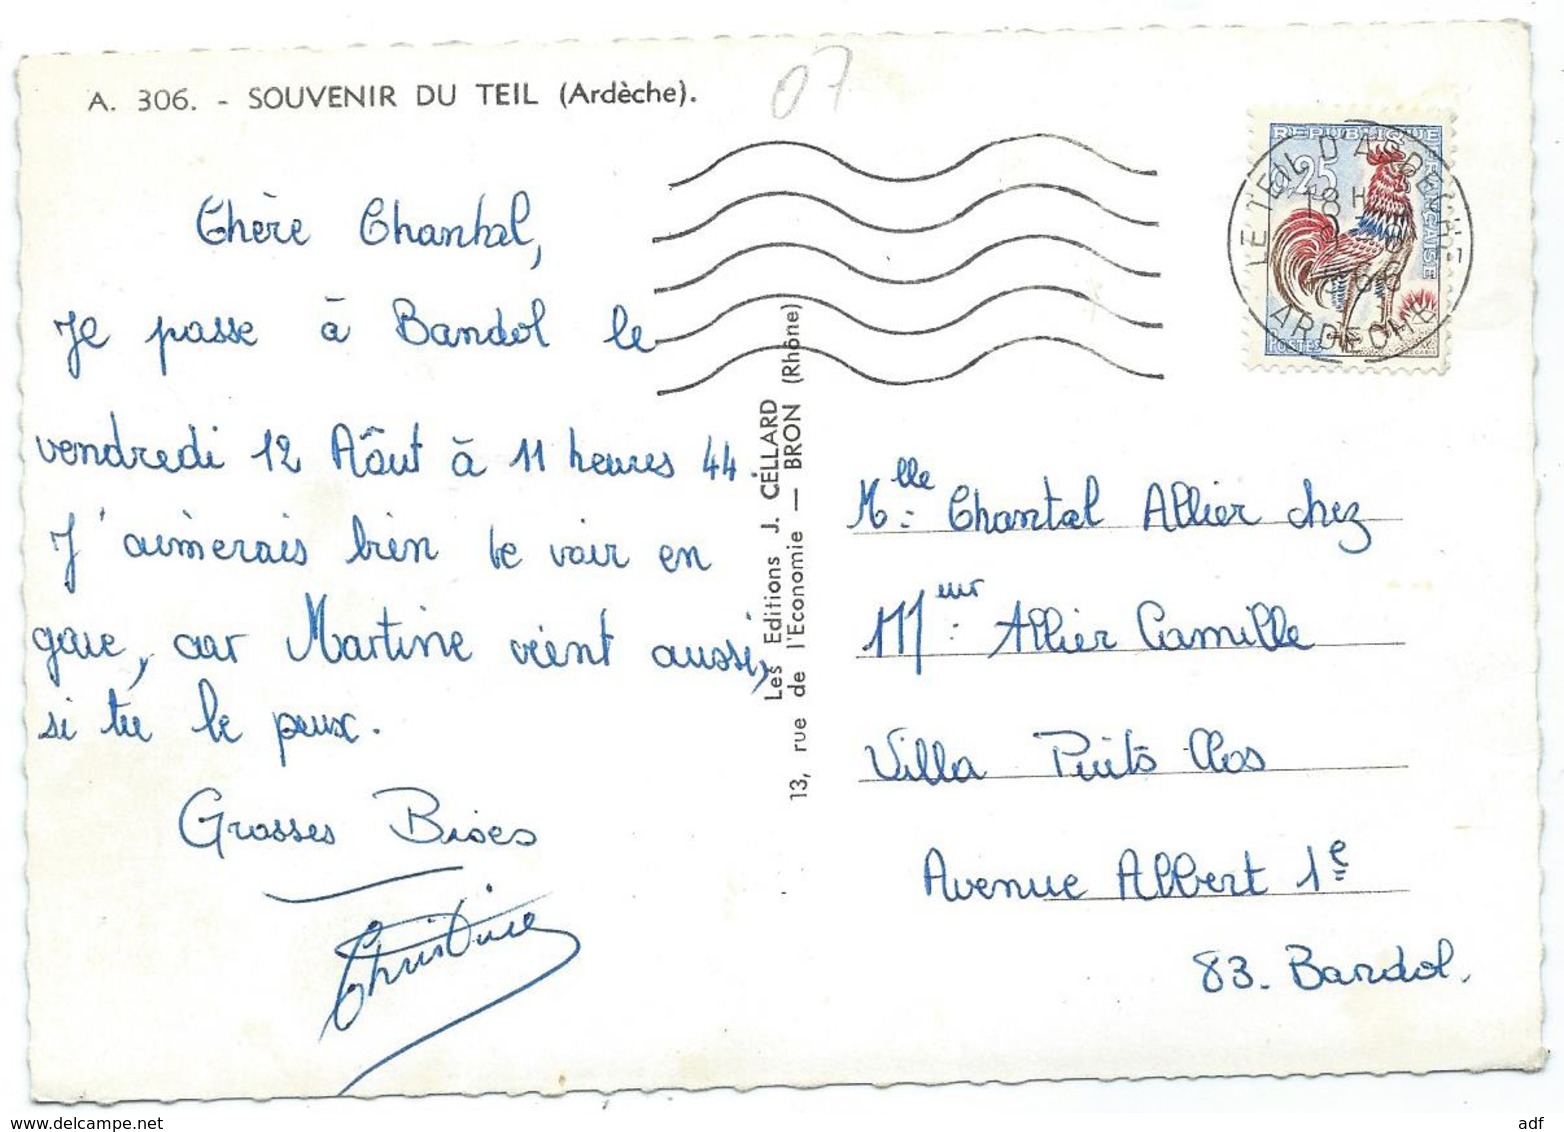 A. 306. - SOUVENIR DU TEIL (Ardèche).
07
REPUBLIQUE FRANÇAISE
0,25
POSTES
LE TEIL D'ARDECHE
18 H
8
66
ARDECHE
Chère Chantal,
Je passe à Bandol le
vendredi 12 Aôut à 11 heures 44.
J'aimerais bien te voir en
gare, car Martine vient aussi,
si tu le peux.
Grosses Bises
Christine
Les Editions J. CELLARD
13, rue de l'Economie — BRON (Rhône)
Mlle: Chantal Allier chez
Meur: Allier Camille
Villa Puits Clos
Avenue Albert 1e
83. Bandol.
adf